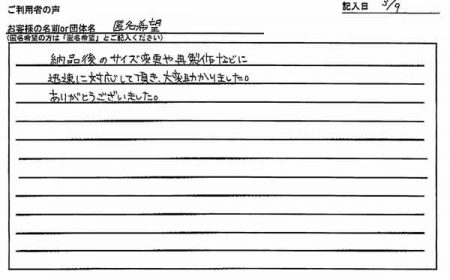 ご利用者の声
記入日 3/9
お客様の名前or団体名 匿名希望
(匿名希望の方は「匿名希望」とご記入ください)
納品後のサイズ変更や再製作などに
迅速に対応して頂き、大変助かりました。
ありがとうございました。